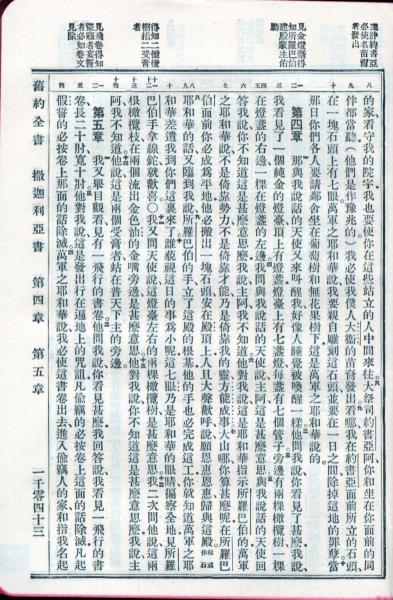 必使名苗裔
者發出
見金燈臺得
知所羅巴伯
建殿蒙主佑
助
得知二橄欖
樹指二受膏
者
見飛卷得知
盜竊者妄誓
者必如卷文
見除
的家看守我的院宇我也要使你在這些站立的人中間來往大祭司約書亞阿你和坐在你面前的同
伴都當聽(他們是作豫兆的)我必使我僕人大衛的苗裔發出看哪我在約書亞面前所立的石頭
在一塊石頭上有七眼萬軍之耶和華說我要親自雕刻這石頭並要在一日之間除掉這地的罪孽當
那日你們各人要請鄰舍坐在葡萄樹和無花果樹下這是萬軍之耶和華說的
第四章 那與我說話的天使又來叫醒我好像人睡覺被喚醒一樣他問我說你看見了甚麼我說
我看見了一個純金的燈臺頂上有燈盞燈臺上有七盞燈每盞有七個管子旁邊有兩棵橄欖樹一棵
在燈盞的右邊一棵在燈盞的左邊我問與我說話的天使說主阿這是甚麼意思與我說話的天使回
答我說你不知道這是甚麼意思麼我說主阿我不知道他對我說這是耶和華指示所羅巴伯的萬軍
之耶和華說不是倚靠勢力不是倚靠才能乃是倚靠我的靈方能成事大山哪你算甚麼呢在所羅巴
伯面前你必成為平地他必搬出一塊石頭安在殿頂上人且大聲歡呼說願恩惠恩惠歸與這殿耶
和華的話又臨到我說所羅巴伯的手立了這殿的根基他的手也必完成這工你就知道萬軍之耶
和華差遣我到你們這裏來了誰藐視這日的事為小呢這七眼乃是耶和華的眼睛徧察全地見所羅
巴伯手拿線鉈就歡喜)我又問天使說這燈臺左右的兩棵橄欖樹是甚麼意思我二次問他說這兩
根橄欖枝在兩個流出金色油的金嘴旁邊是甚麼意思他對我說你不知道這是甚麼意思麼我說主
阿我不知道他說這是兩個受膏者站在普天下主的旁邊
第五章 我又舉目觀看見有一飛行的書卷他問我說你看見甚麼我回答說我看見一飛行的書
卷長二十肘寬十肘他對我說這是發出行在遍地上的咒詛凡偷竊的必按卷上這面的話除滅凡起
假誓的必按卷上那面的話除滅萬軍之耶和華說我必使這書卷出去進入偷竊人的家和指我名起
舊約全書 撒迦利亞書 第四章 第五章 一千零四十三